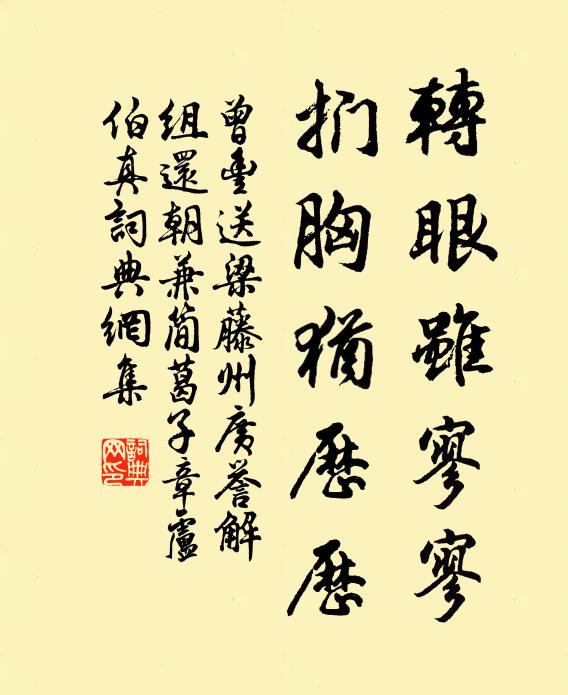 轉眼雖寥寥
捫胸猶歷歷
曾豐送梁藤州廣譽解
組還朝兼簡葛子章盧
伯真詞典網集
詞典
网印